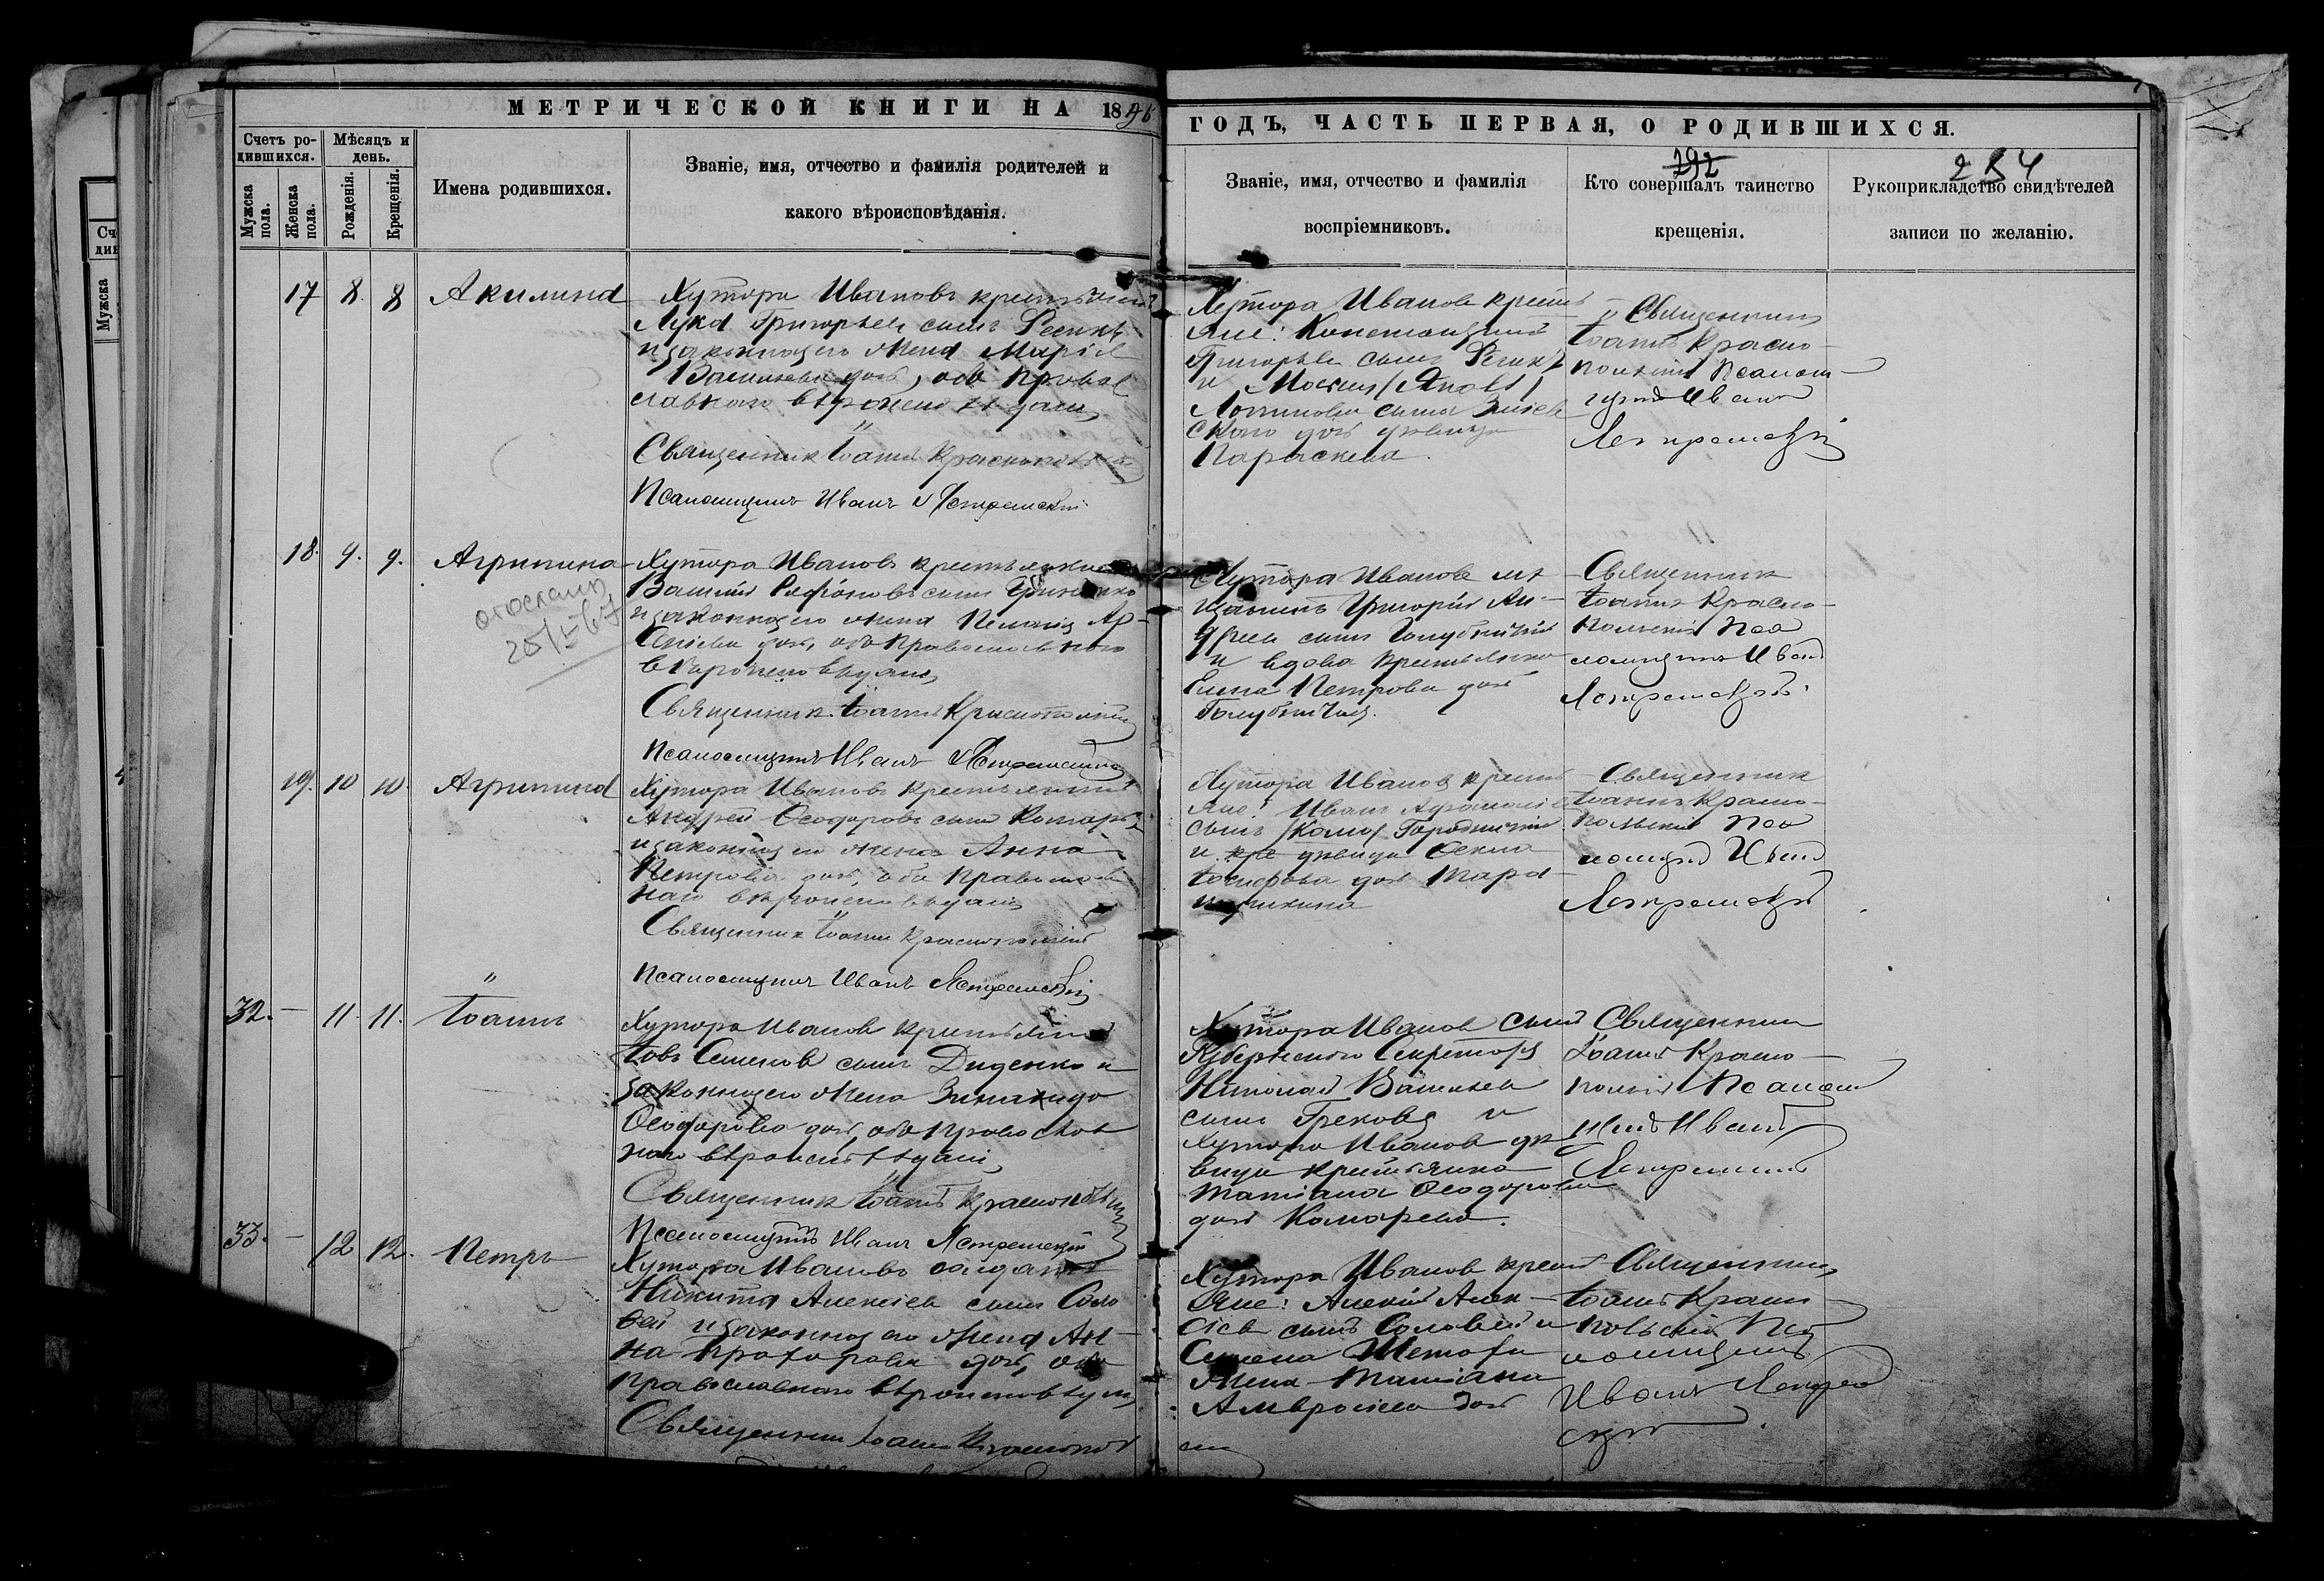 МЕТРИЧЕСКОЙ КНИГИ НА 18
ГОДЪ, ЧАСТЬ ПЕРВАЯ, О РОДИВШИХСЯ.
Счетъ ро-
дившихся.
Мѣсяцъ и
день.
Мужска
пола.
Женска
пола.
Рожденія.
Крещенія.
Имена родившихся.
Званіе, имя, отчество и фамилія родителей и
какого вѣроисповѣданія.
Званіе, имя, отчество и фамилія
воспріемниковъ.
292
Кто совершалъ таинство
крещенія.
284
Рукоприкладство свидѣтелей
записи по желанію.
17 8. 8 Акилина
Хутора Ивановъ
Лука Григорьев сынъ
и законная его жена Марія
Васильева доч, оба правос
лавнаго вѣроисповѣданія
Священникъ Іоаннъ Краснопольскій
Псаломщикъ Иванъ Ястремскій
Хутора Иванова крест
яне: Константинъ
Григорьев сынъ
и
Логинова сына
ского доч дѣвица
Параскева.
Священникъ
Іоаннъ Красно-
польскій Псалом-
щикъ Иванъ
Ястремскій
18. 9. 9. Агрипина
отослано
Хутора Ивановъ
Василій сынъ
и законная его жена Ар-
сеніева доч, оба православнаго
вѣроисповѣданія
Священникъ Іоаннъ Краснопольскій
Псаломщикъ Иванъ Ястремскій
Хутора Иванова мѣ
щанинъ Григорій Ан-
дреев сынъ Голубничій
и вдова крестьянка
Елена Петрова доч
Голубничая.
Священникъ
Іоаннъ Красно-
польскій Пса
ломщикъ Иван
Ястремскій
19. 10 10. Агрипина
Хутора Ивановъ крестьянинъ
Андрей Ѳеодоровъ сынъ Комарь
и законная его жена Анна
Петрова доч, оба православ
наго вѣроисповѣданія
Священникъ Іоаннъ Краснопольскій
Псаломщикъ Иванъ Ястремскій
Хутора Иванов крест
яне: Иванъ
сынъ Городничій
и дѣвица Ѳекла
Іосифова доч
Священникъ
Іоаннъ Красно-
польскій Пса
ломщикъ Иван
Ястремскій
32. - 11. 11. Іоаннъ
Хутора Иванов крестьянинъ
Іовъ Семенов сынъ Диденко и
законная его жена Зинаида
Ѳеодорова доч, оба православ
наго вѣроисповѣданія
Священникъ Іоаннъ Краснопольскій
Псаломщикъ Иванъ Ястремскій
Хутора Иванов сынъ
Губернскаго Секретаря
Николай Васильев
сынъ Грековъ и
хутора Иванов дѣ
вица крестьянка
Татіана Ѳеодорова
доч Комарева.
Священник
Іоаннъ Красно-
польскій Псалом
щикъ Иванъ
Ястремскій
33. - 12 12. Петръ
Хутора Ивановъ солдатъ
Никита Алексіев сынъ Соло
вей и законная его жена Ан-
на Прохорова доч, оба
православнаго вѣроисповѣданія
Священник Іоаннъ Краснопол
Хутора Иванов крест
яне: Алексій Алек-
сіев сынъ Соловей и
Семена
жена Татіана
Амвросіева доч
Священник
Іоаннъ Красно-
польскій Пса
ломщикъ
Иванъ Ястрем
скій